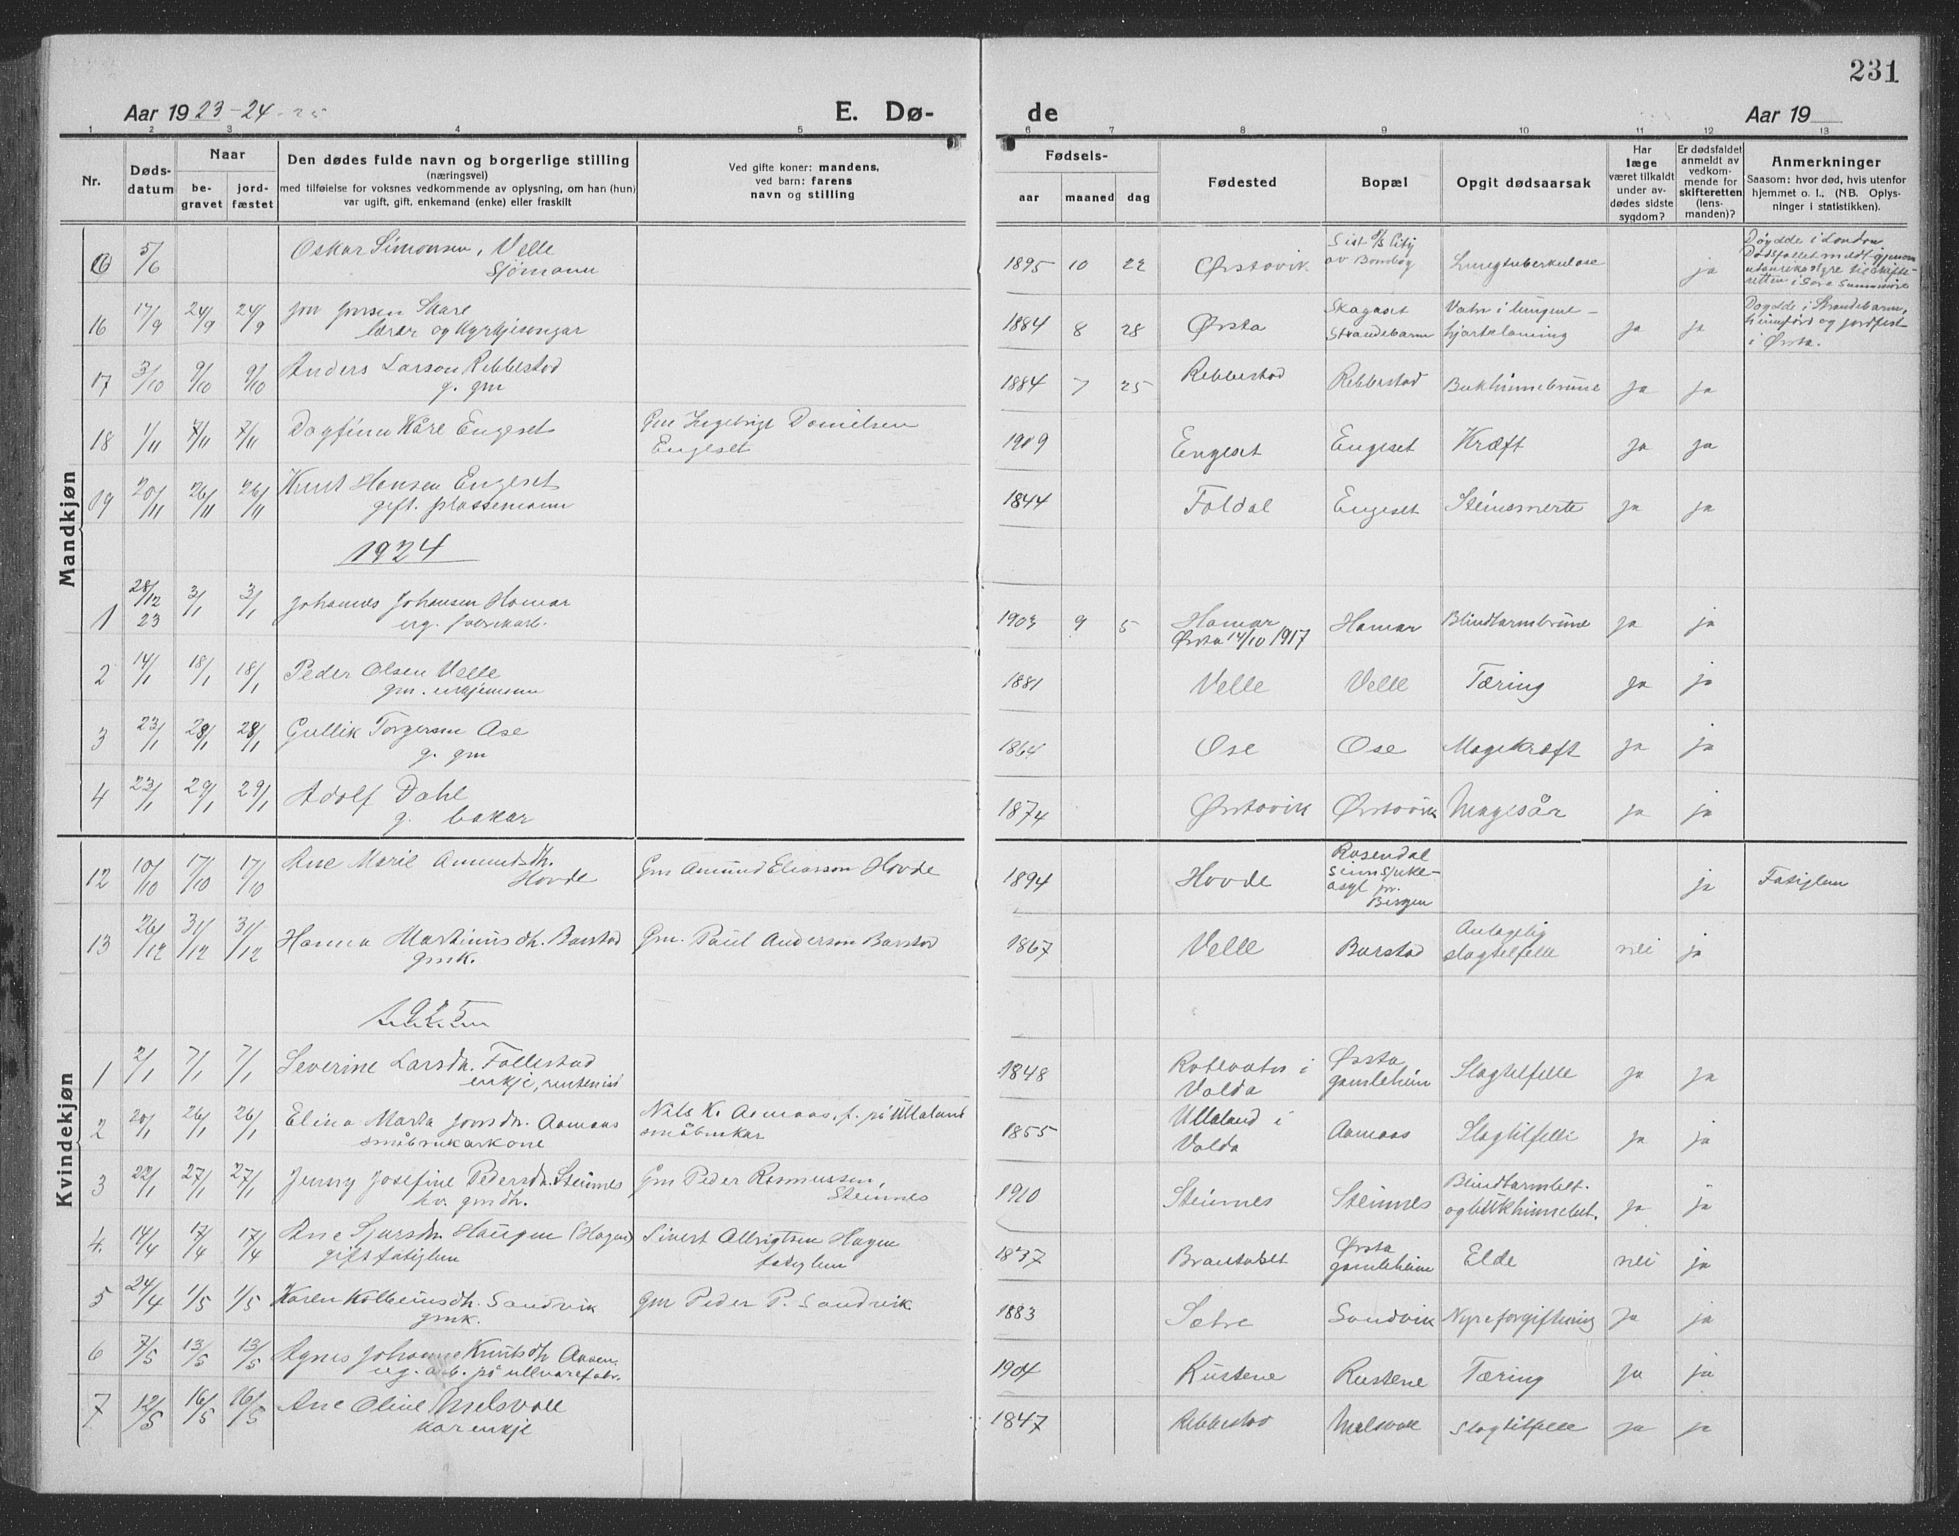 231
Aar 1923-24-25 E. Dø- de Aar 19
1 2 3 4 5 6 7 8 9 10 11 12 13
Nr. Døds-datum Naar be-gravet jord-fæstet Den dødes fulde navn og borgerlige stilling (næringsvei) med tilføielse for voksnes vedkommende av oplysning, om han (hun) var ugift, gift, enkemand (enke) eller fraskilt Ved gifte koner: mandens, ved barn: farens navn og stilling Fødsels- aar maaned dag Fødested Bopæl Opgit dødsaarsak Har læge været tilkaldt under av-dødes sidste sygdom? Er dødsfaldet anmeldt av vedkom-mende for skifteretten (lens-manden)? Anmerkninger Saasom: hvor død, hvis utenfor hjemmet o. l., (NB. Oplys-ninger i statistikken).
Mandkjøn
5/6 Oskar Simonsen, Velle Sjømann 1895 10 22 Ørstavik Sist d/s City av Bombay Lungtuberkulose ja Døydde i London Dødsfallet meldt gjenom
16 17/9 24/9 24/9 Jon Jonsen Skare lærar og kyrkjesongar 1884 8 28 Ørsta Skagaset Strandebarm Vatn i lunget- hjartelaming ja ja Døydde i Strandebarm, heimførd og jordfest i Ørsta.
17 3/10 9/10 9/10 Anders Larson Rebbestad g. gm 1884 7 25 Rebbestad Rebbestad Bukhinnebrune ja ja
18 1/11 7/11 7/11 Dagfinn Kåre Engeset Gm Ingebrigt Danielsen Engeset 1909 Engeset Engeset Kræft ja ja
19 20/11 26/11 26/11 Knut Hansen Engeset gift. plassemann 1844 Foldal Engeset Steinsmerte ja ja
1924
1 28/12 23 3/1 3/1 Johannes Johansen Hamar ug. fabrikarb. 1903 9 5 Hamar Ørsta 14/10 1917 Hamar Blindtarmbrune ja ja
2 14/1 18/1 18/1 Peder Olsen Velle gm. enkjemann 1881 Velle Velle Tæring ja ja
3 23/1 28/1 28/1 Gullik Torgersen Ose g. gm 1864 Ose Ose Magekræft ja ja
4 23/1 29/1 29/1 Adolf Dahl g. bakar 1874 Ørstavik Ørstavik Magesår ja ja
Kvindekjøn
12 10/10 17/10 17/10 Ane Marie Amundsdh. Hovde Gm Amund Eliasson Hovde 1894 Hovde Rosendal Sinnsjuke-asyl pr. Bergen ja Fatiglem
13 26/12 31/12 31/12 Hanna Martinusdh. Barstad gmk. Gm. Paul Anderson Barstad 1867 Velle Barstad Antagelig slagtilfelle nei ja
1925
1 2/1 7/1 7/1 Severine Larsdh. Follestad enkje, rentenist 1848 Rotevatn i Volda Ørsta gamleheim Slagtilfelle ja ja
2 20/1 26/1 26/1 Elina Marta Jonsdh. Aamaas småbrukarkone Nils K. Aamaas, f. på Ullaland småbrukar 1855 Ullaland i Volda Aamaas Slagtilfelle ja ja
3 22/1 27/1 27/1 Jenny Josefine Pedersdh. Steinnes hv. gmdh. Gm Peder Rasmussen, Steinnes 1910 Steinnes Steinnes Blindtarmbet. og bukhinnebet. ja ja
4. 14/4 17/4 17/4 Ane Sjursdh. Haugen (Hagen) gift fatiglem Sivert Albrigtsen Hagen fatiglem 1837 Ørsta gamleheim Elde nei ja
5 24/4 1/5 1/5 Karen Kolbeinsdh. Sandvik gmk. gm Peder P. Sandvik 1883 Sætre Sandvik Nyreforgiftning ja ja
6 7/5 13/5 13/5 Agnes Johanne Knutsdh Aasen, ug. arb. på ullvarefabr. 1904 Rustene Rustene Tæring ja ja
7 12/5 16/5 16/5 Ane Oline Melsvoll kårenkje 1847 Rebbestad Melsvoll Slagtilfelle ja ja